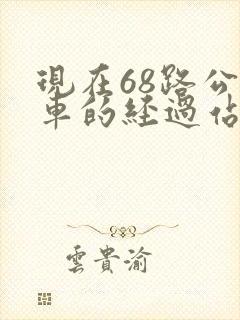 現在68路公
車的經過佔
雲貴渝